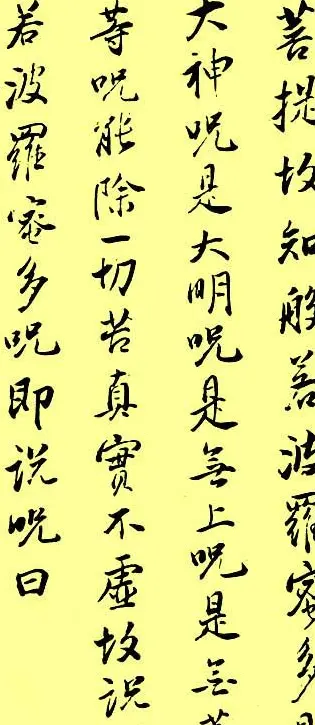 菩提故知般若波羅蜜多是
大神呪是大明呪是無上呪是無等
等呪能除一切苦真實不虛故说
若波羅蜜多呪即说呪曰